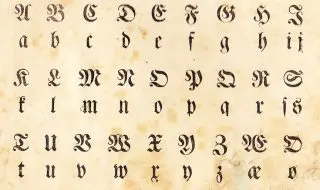 A B C D E F G H I
a b c d e f g h i j
K L M N O P Q R S
k l m n o p q r ſ s
T U V W X Y Z Æ Ø
t u v w x y z æ ø